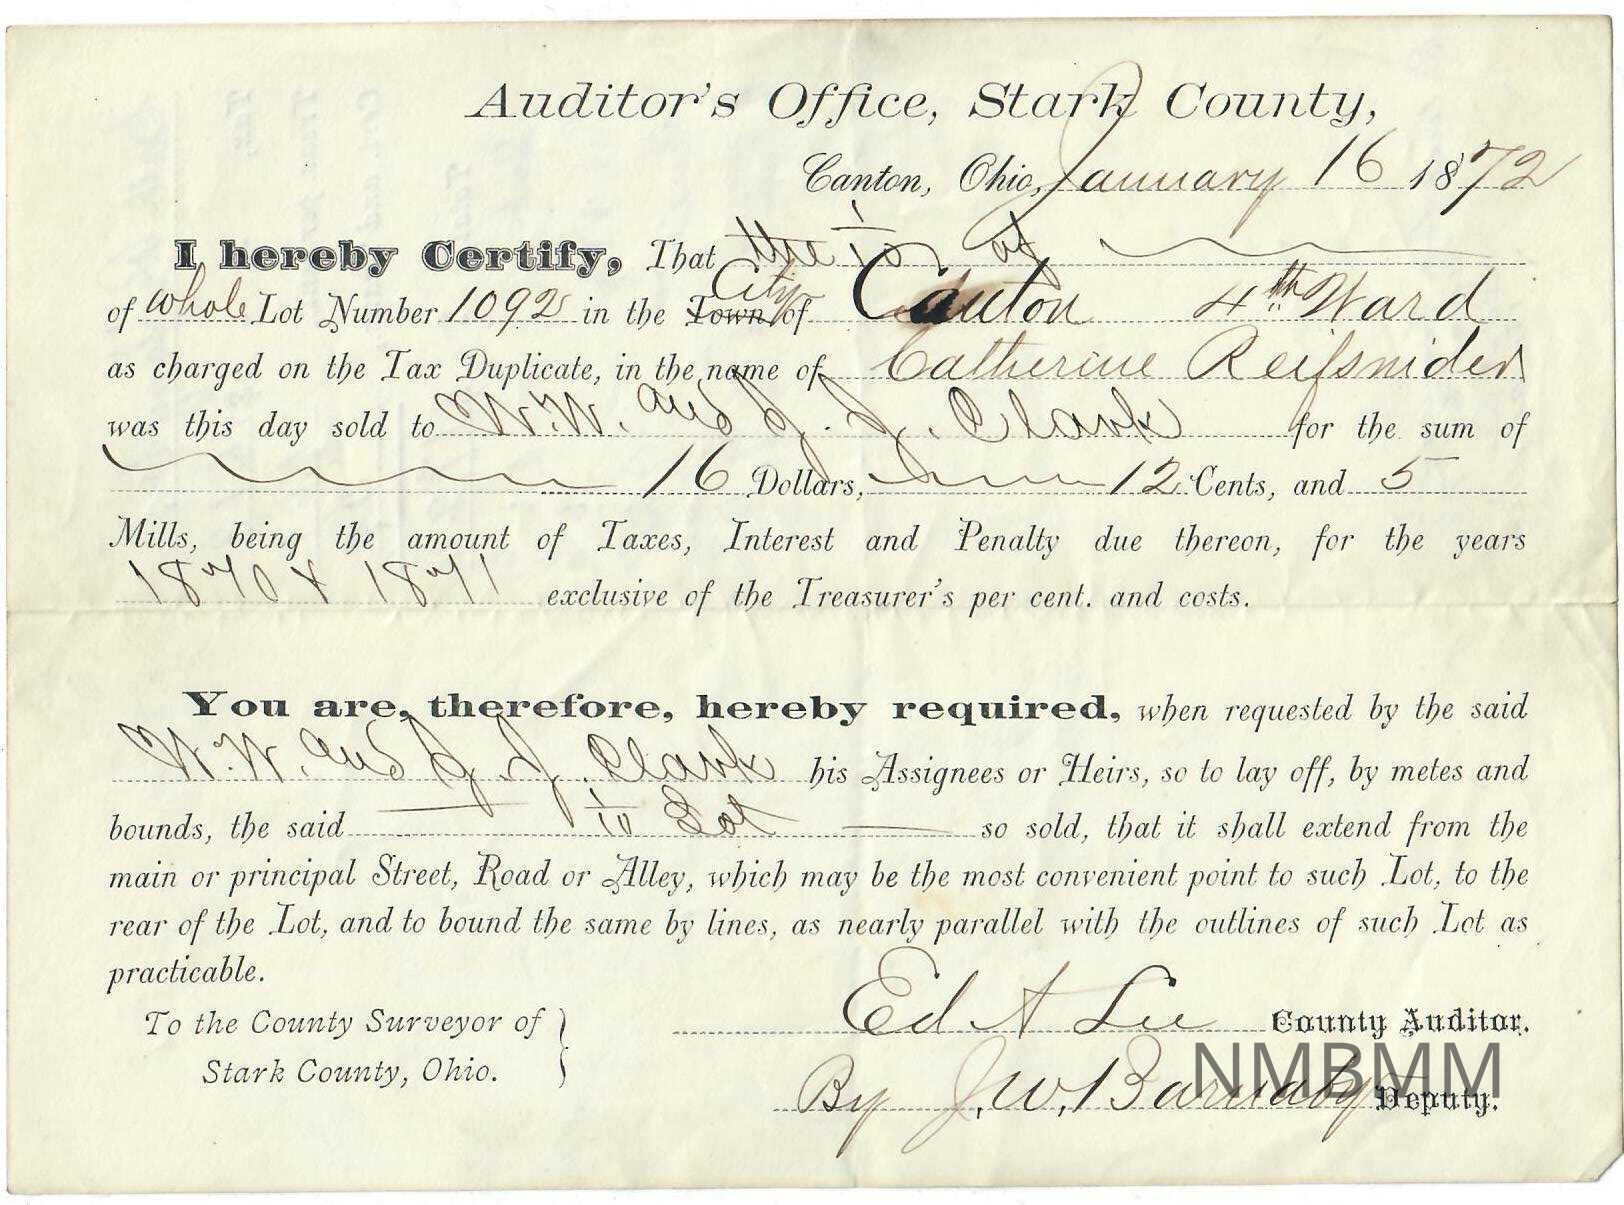 Auditor's Office, Stark County,
Canton, Ohio, January 16 1872
I hereby Certify, That the 1/10 of
of whole Lot Number 1092 in the Town City of Canton 4th Ward
as charged on the Tax Duplicate, in the name of Catherine Reifsnider
was this day sold to W. W. and J. J. Clark for the sum of
16 Dollars, 12 Cents, and 5
Mills, being the amount of Taxes, Interest and Penalty due thereon, for the years
1870 & 1871 exclusive of the Treasurer's per cent. and costs.
You are, therefore, hereby required, when requested by the said
W. W. and J. J. Clark his Assignees or Heirs, so to lay off, by metes and
bounds, the said 1/10 Lot so sold, that it shall extend from the
main or principal Street, Road or Alley, which may be the most convenient point to such Lot, to the
rear of the Lot, and to bound the same by lines, as nearly parallel with the outlines of such Lot as
practicable.
To the County Surveyor of
Stark County, Ohio.
Ed A Lee County Auditor.
By J. W. Barnaby Deputy.
NMBMM